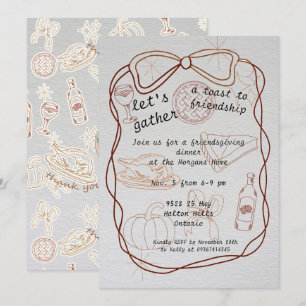 let's
gather
a toast to
friendship
Join us for a friendsgiving
dinner
at the Morgans Home
Nov. 5 from 6-9 pm
9528 25 Hwy
Halton Hills
Ontario
Kindly RSVP by November 10th
to Kelly at 09367814345
thank you